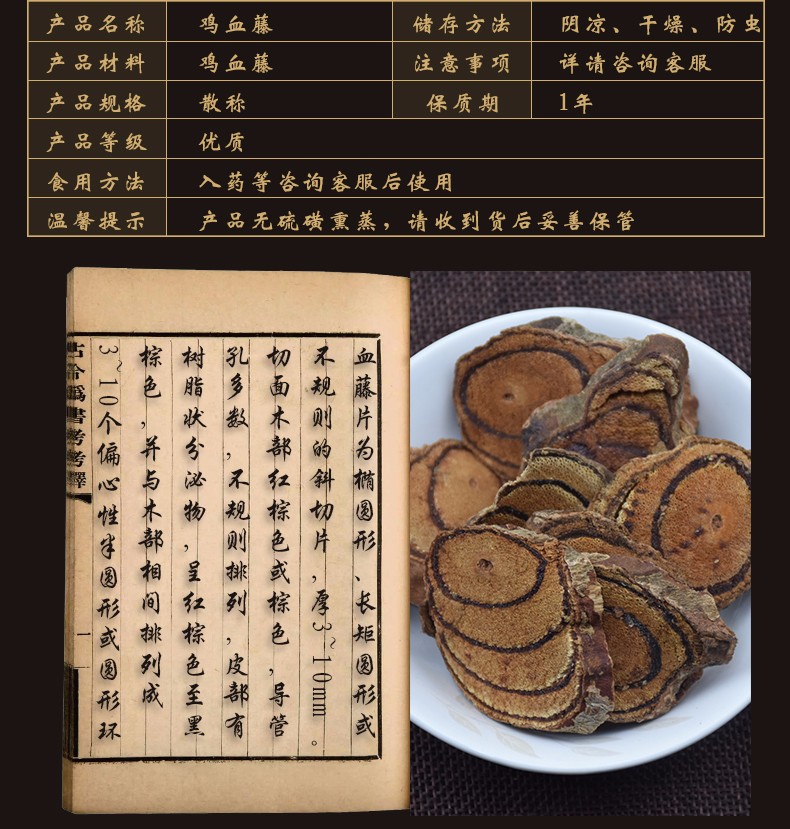 产品名称 鸡血藤 储存方法 阴凉、干燥、防虫
产品材料 鸡血藤 注意事项 详请咨询客服
产品规格 散称 保质期 1年
产品等级 优质
食用方法 入药等咨询客服后使用
温馨提示 产品无硫磺熏蒸，请收到货后妥善保管
血藤片为椭圆形、长矩圆形或
不规则的斜切片，厚3~10mm。
切面木部红棕色或棕色，导管
孔多数，不规则排列，皮部有
树脂状分泌物，呈红棕色至黑
棕色，并与木部相间排列成
3~10个偏心性半圆形或圆形环
古今爲書考考釋
一